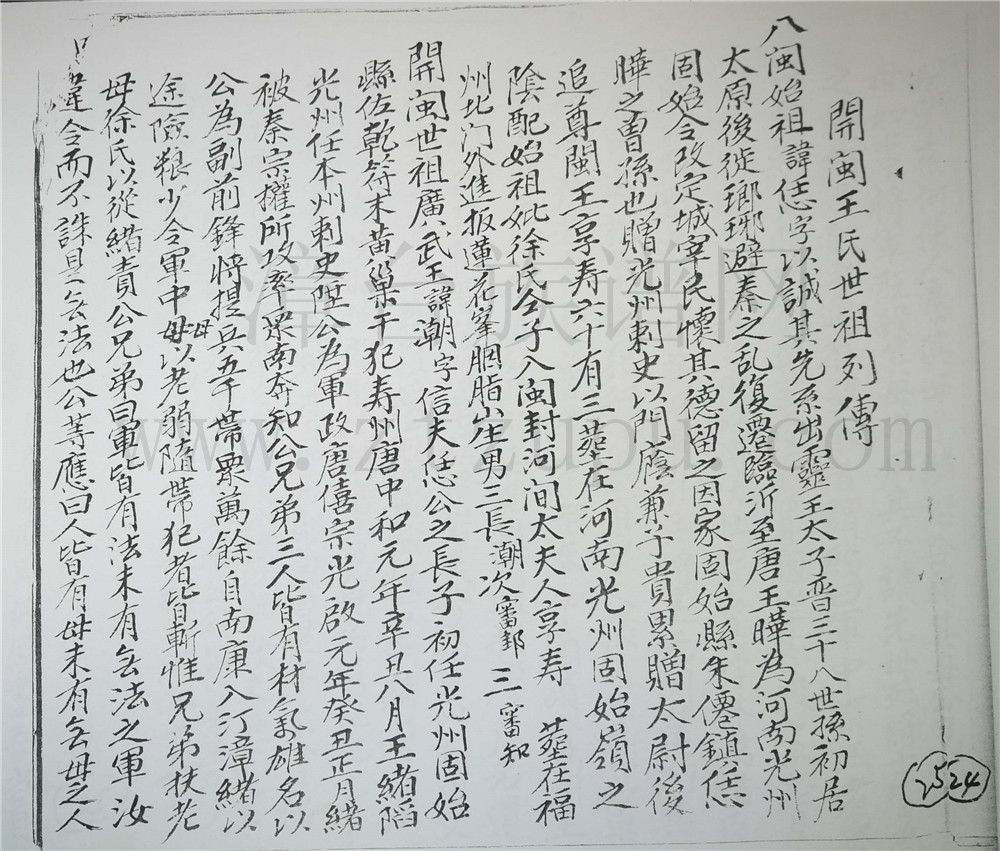 開閩王氏世祖列傳
八閩始祖諱恁字以誠其先系出靈王太子晋三十八世孫初居
太原後徙瑯琊避秦之乱復遷臨沂至唐王曄為河南光州
固始令改定城宰民懷其德留之因家固始縣朱僊鎮恁
曄之曾孫也贈光州刺史以門廕兼子貴累贈太尉後
追尊閩王享寿六十有三塟在河南光州固始嶺之
陰配始祖妣徐氏仝子入閩封河间太夫人享寿 塟在福
州北门外進坂蓮花峯胭脂山生男三長潮次審邽三審知
開閩世祖廣武王諱潮字信夫恁公之長子初任光州固始
縣佐乾符末黃巢干犯寿州唐中和元年辛丑八月王緒陷
光州任本州刺史陞公為軍政唐僖宗光啟元年癸丑正月緒
被秦宗權所攻率眾南奔知公兄弟三人皆有材氣雄名以
公為副前鋒將提兵五千帶眾萬餘自南康入汀漳緒以
途險粮少令軍中毋以老弱隨帶犯者皆斬惟兄弟扶老
母徐氏以從緒責公兄弟曰軍皆有法未有无法之軍汝
違令而不誅是无法也公等應曰人皆有母未有无母之人
2524
漳台族谱网
www.zzizupu.com